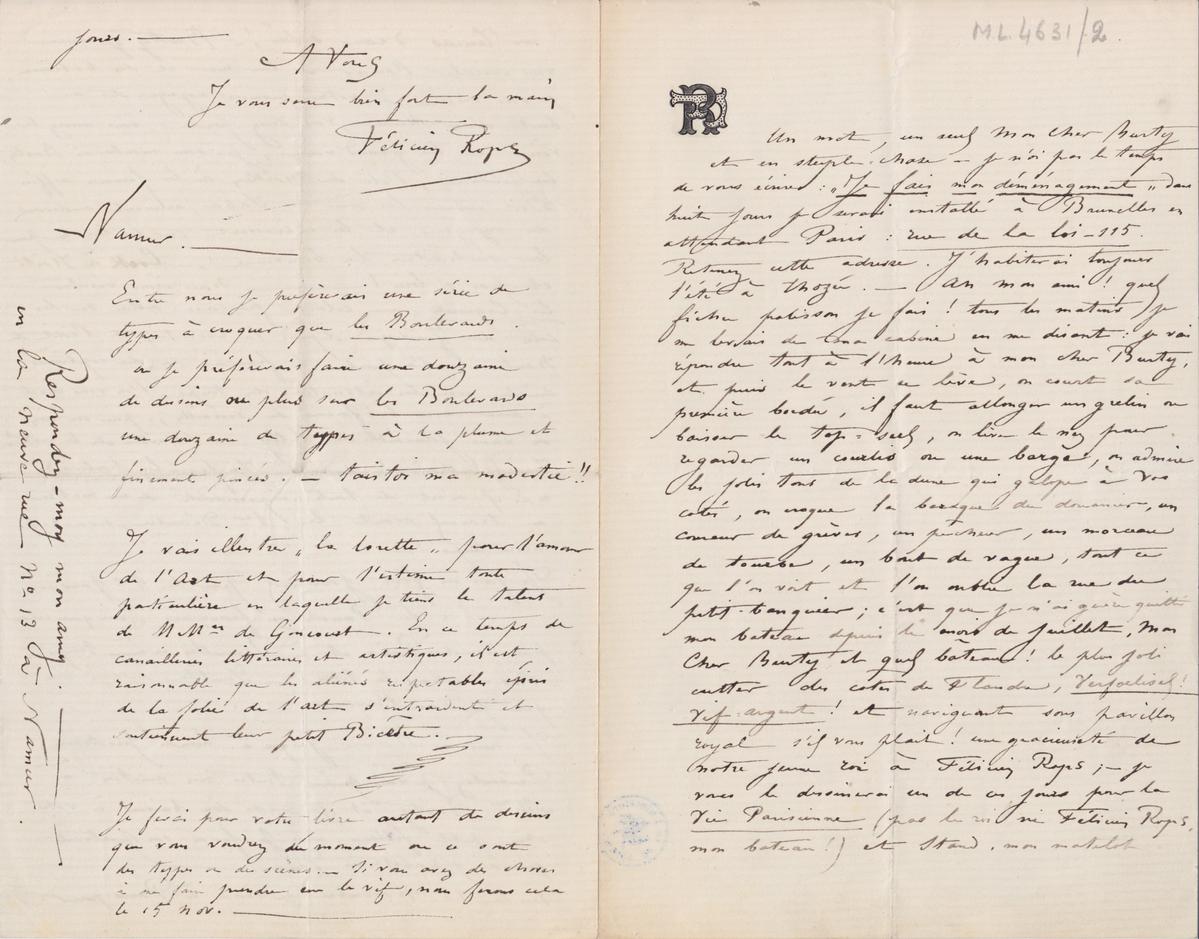 ML 4631/2
Un mot, un seul mon cher Burty
et en steeple-chase — je n'ai pas le temps
de vous écrire : „Je fais mon déménagement" dans
huit jours je serai installé à Bruxelles en
attendant Paris : rue de la loi - 115.
Retenez cette adresse. J'habiterai toujours
l'été à Thozée. — Ah mon ami ! quel
fichu polisson je fais ! tous les matins je
me levais de ma cabine en me disant : je vais
répondre tout à l'heure à mon cher Burty,
et puis le vent se lève, on court sa
première bordée, il faut allonger un grelin ou
baisser le top-seul, on lève le nez pour
regarder un courlis ou une barge, on admire
les jolis tons de la dune qui galope à vos
cotés, on croque la baraque du douanier, un
coureur de grèves, un pêcheur, un morceau
de tourbe, un bout de vague, tout ce
que l'on voit et l'on oublie la rue du
petit-banquier ; c'est que je n'ai guère quitté
mon bateau depuis le mois de Juillet, mon
cher Burty et quel bâteau ! le plus joli
cutter des cotes de Flandre,
vif-argent ! et naviguant sous pavillon
royal s'il vous plait ! une gracieuseté de
notre jeune roi à Félicien Rops ; — je
vous le dessinerai un de ces jours pour la
Vie Parisienne (pas le roi ni Félicien Rops,
mon bateau !) et Stand, mon matelot
jours. —
A Vous
Je vous serre bien fort la main
Félicien Rops
Namur. —
Entre nous je préfèrerais une série de
types à croquer que les Boulevards.
ou je préfèrerais faire une douzaine
de dessins au plus sur les Boulevards
une douzaine de types à la plume et
finement pincés. — tais toi ma modestie !!
Je vais illustrer „la lorette" pour l'amour
de l'Art et pour l'estime toute
particulière en laquelle je tiens le talent
de MMrs de Goncourt. En ce temps de
canailleries littéraires et artistiques, il est
raisonnable que les aliénés respectables épris
de la folie de l'art s'entraident et
soutiennent leur petit Bicêtre.
Je ferai pour votre livre autant de dessins
que vous voudrez du moment où ce sont
des types ou des scènes. — Si vous avez des choses
à me faire prendre sur le vif, nous ferons cela
le 15 nov. —
Respondez-moy mon amy. —
en l'ôn neuve rue N° 13 à Namur.